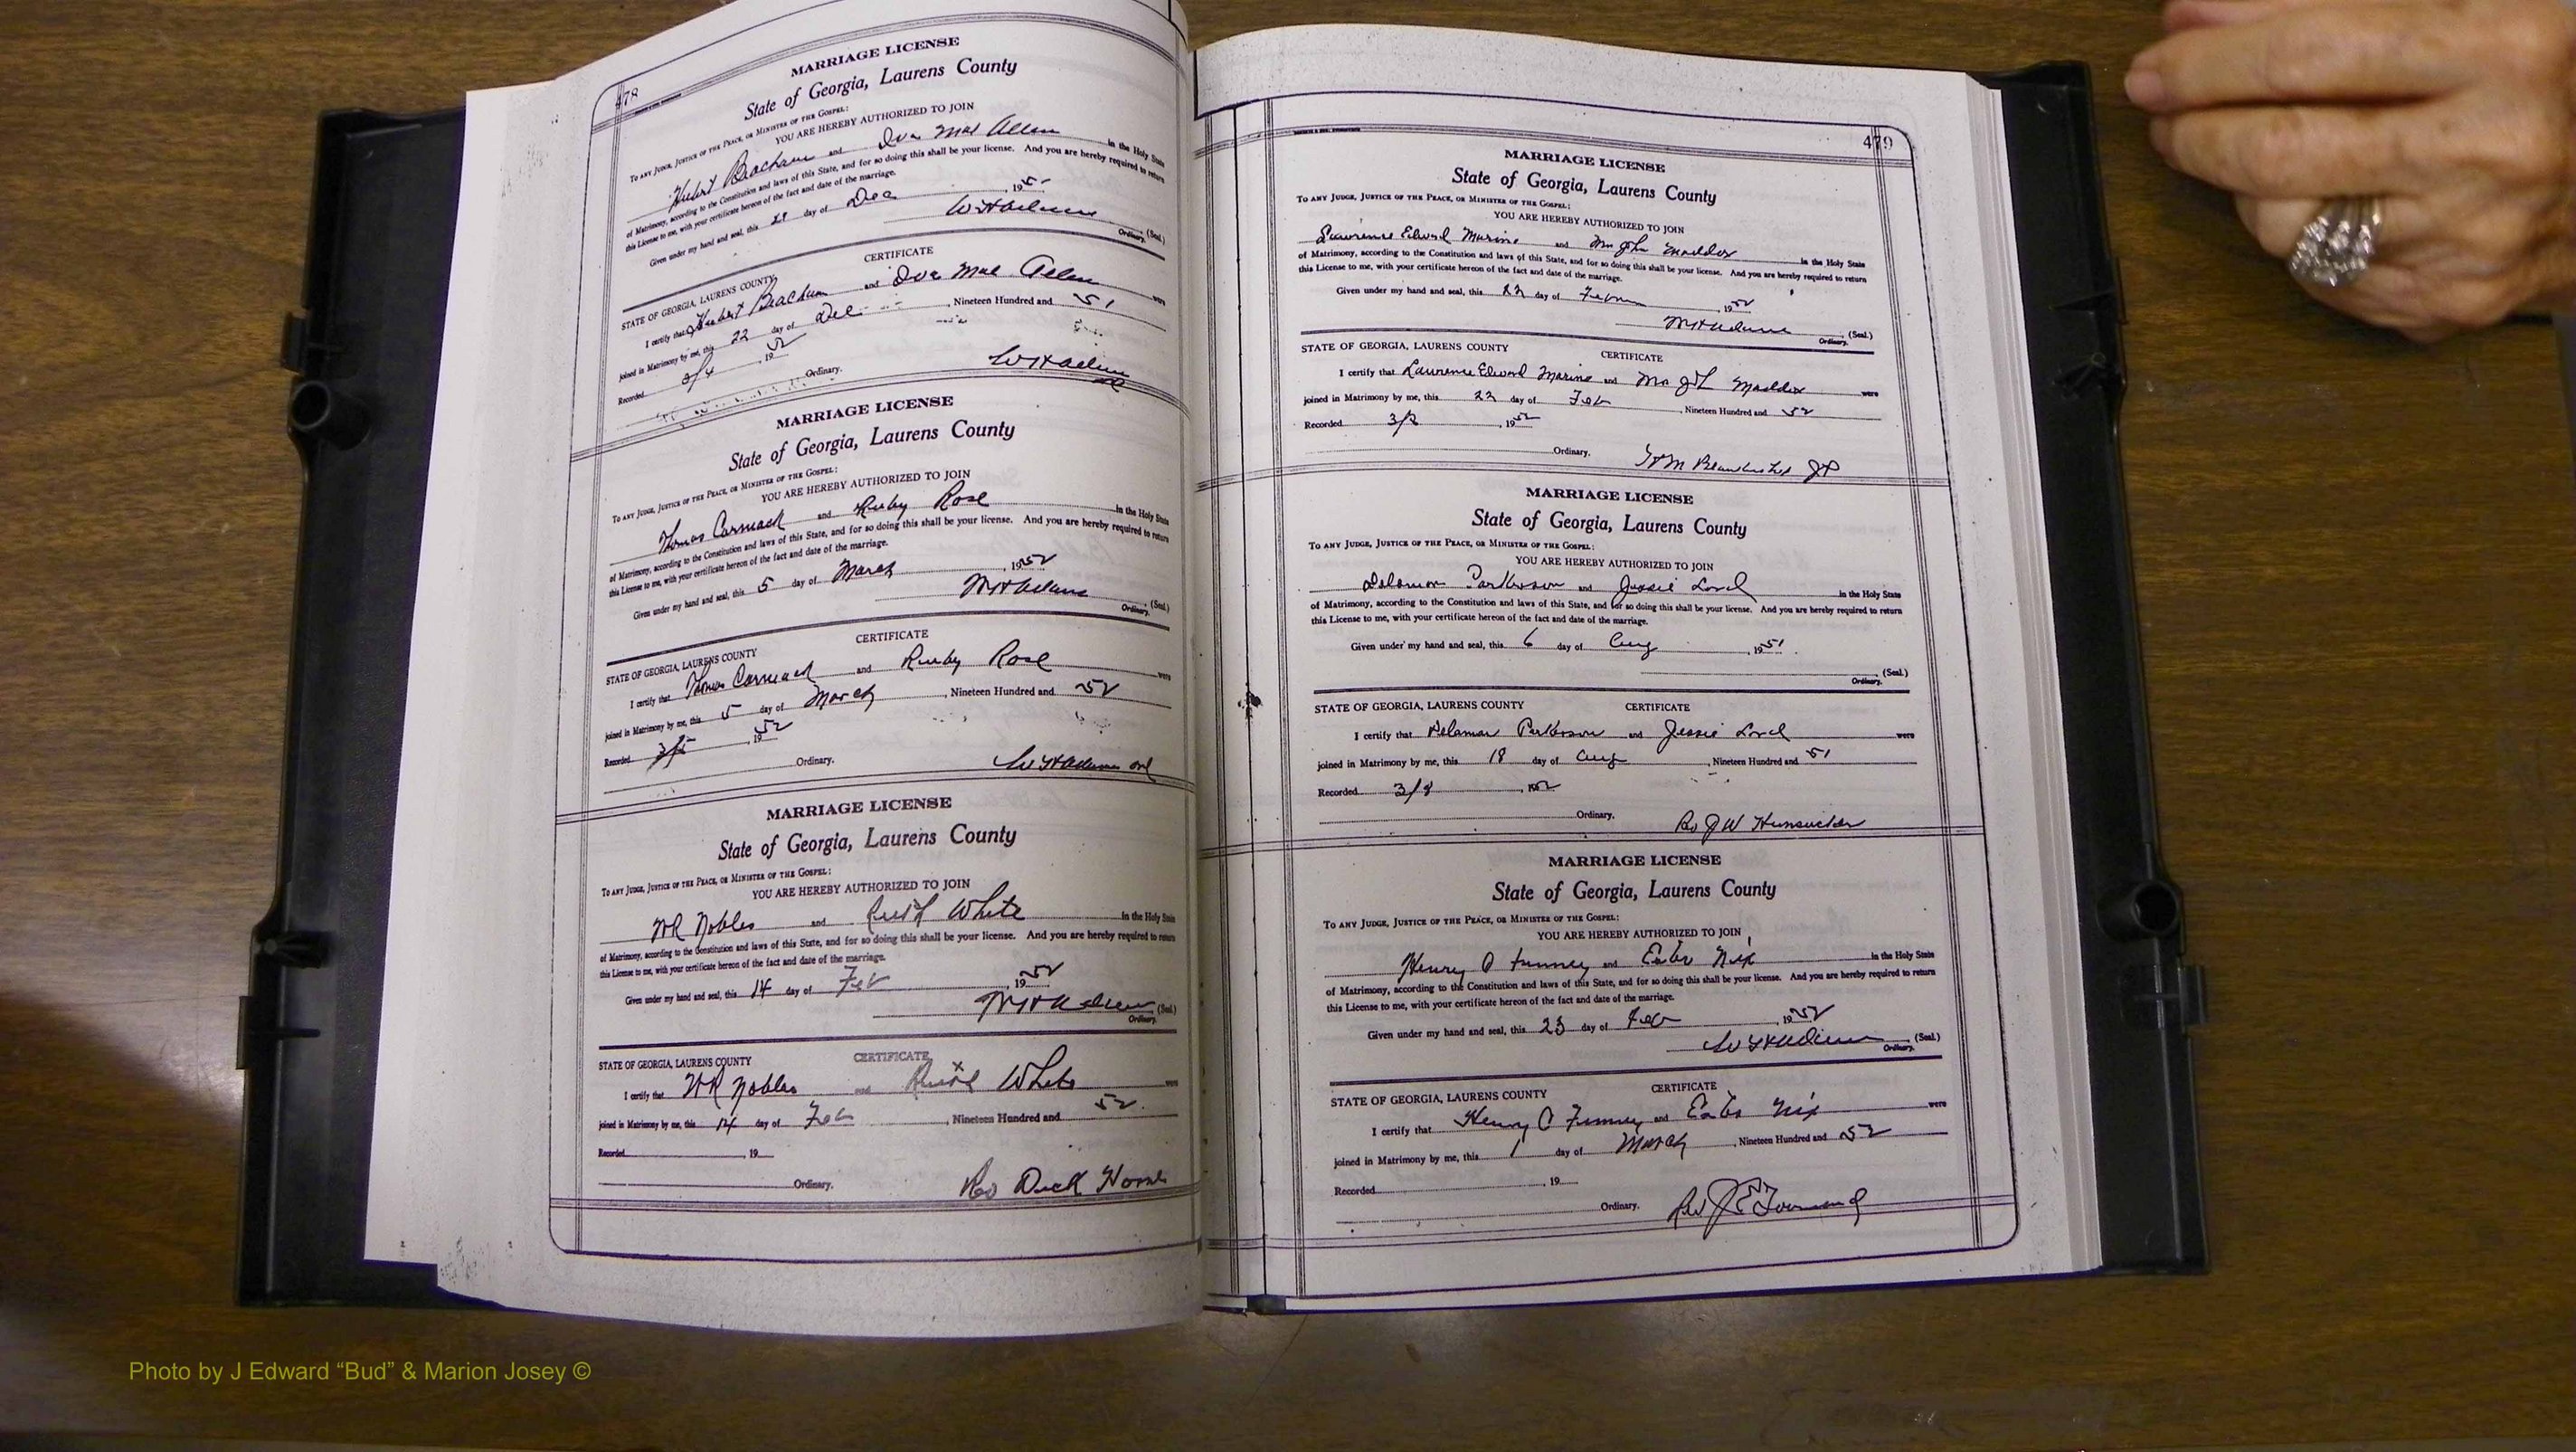 478
MARRIAGE LICENSE
State of Georgia, Laurens County
To any Judge, Justice of the Peace, or Minister of the Gospel:
YOU ARE HEREBY AUTHORIZED TO JOIN
Hubert Beacham and Iva Mae Allen in the Holy State
of Matrimony, according to the Constitution and laws of this State, and for so doing this shall be your license. And you are hereby required to return
this License to me, with your certificate hereon of the fact and date of the marriage.
Given under my hand and seal, this 21 day of Dec, 1951
W H Adams (Seal.)
Ordinary.
CERTIFICATE
STATE OF GEORGIA, LAURENS COUNTY
I certify that Hubert Beacham and Iva Mae Allen were
joined in Matrimony by me, this 22 day of Dec, Nineteen Hundred and 51
Recorded 3/4, 1952
Ordinary. W H Adams
MARRIAGE LICENSE
State of Georgia, Laurens County
To any Judge, Justice of the Peace, or Minister of the Gospel:
YOU ARE HEREBY AUTHORIZED TO JOIN
Thomas Carmack and Ruby Rose in the Holy State
of Matrimony, according to the Constitution and laws of this State, and for so doing this shall be your license. And you are hereby required to return
this License to me, with your certificate hereon of the fact and date of the marriage.
Given under my hand and seal, this 5 day of March, 1952
W H Adams (Seal.)
Ordinary.
CERTIFICATE
STATE OF GEORGIA, LAURENS COUNTY
I certify that Thomas Carmack and Ruby Rose were
joined in Matrimony by me, this 5 day of March, Nineteen Hundred and 52
Recorded 3/5, 1952
Ordinary. W H Adams Ord
MARRIAGE LICENSE
State of Georgia, Laurens County
To any Judge, Justice of the Peace, or Minister of the Gospel:
YOU ARE HEREBY AUTHORIZED TO JOIN
Nobles and Ruth White in the Holy State
of Matrimony, according to the Constitution and laws of this State, and for so doing this shall be your license. And you are hereby required to return
this License to me, with your certificate hereon of the fact and date of the marriage.
Given under my hand and seal, this 14 day of Feb, 1952
W H Adams (Seal.)
Ordinary.
CERTIFICATE
STATE OF GEORGIA, LAURENS COUNTY
I certify that Nobles and White were
joined in Matrimony by me, this 14 day of Feb, Nineteen Hundred and 52.
Recorded, 19
Ordinary. Rev Dick
479
MARRIAGE LICENSE
State of Georgia, Laurens County
To any Judge, Justice of the Peace, or Minister of the Gospel:
YOU ARE HEREBY AUTHORIZED TO JOIN
Lawrence Edward Marine and Maddox in the Holy State
of Matrimony, according to the Constitution and laws of this State, and for so doing this shall be your license. And you are hereby required to return
this License to me, with your certificate hereon of the fact and date of the marriage.
Given under my hand and seal, this 22 day of, 1952
W H Adams (Seal.)
Ordinary.
CERTIFICATE
STATE OF GEORGIA, LAURENS COUNTY
I certify that Lawrence Edward Marine and Maddox were
joined in Matrimony by me, this 22 day of Feb, Nineteen Hundred and 52
Recorded, 1952
Ordinary. JP
MARRIAGE LICENSE
State of Georgia, Laurens County
To any Judge, Justice of the Peace, or Minister of the Gospel:
YOU ARE HEREBY AUTHORIZED TO JOIN
Parkerson and Jessie Lord in the Holy State
of Matrimony, according to the Constitution and laws of this State, and for so doing this shall be your license. And you are hereby required to return
this License to me, with your certificate hereon of the fact and date of the marriage.
Given under my hand and seal, this 6 day of Aug, 1951
(Seal.)
Ordinary.
CERTIFICATE
STATE OF GEORGIA, LAURENS COUNTY
I certify that Parkerson and Jessie Lord were
joined in Matrimony by me, this 18 day of Aug, Nineteen Hundred and 51
Recorded 3/8, 1952
Ordinary. Rev J W Hunsucker
MARRIAGE LICENSE
State of Georgia, Laurens County
To any Judge, Justice of the Peace, or Minister of the Gospel:
YOU ARE HEREBY AUTHORIZED TO JOIN
Henry O Finney and Nix in the Holy State
of Matrimony, according to the Constitution and laws of this State, and for so doing this shall be your license. And you are hereby required to return
this License to me, with your certificate hereon of the fact and date of the marriage.
Given under my hand and seal, this 23 day of Feb, 1952
W H Adams (Seal.)
Ordinary.
CERTIFICATE
STATE OF GEORGIA, LAURENS COUNTY
I certify that Henry O Finney and Nix were
joined in Matrimony by me, this 1 day of March, Nineteen Hundred and 52
Recorded, 19
Ordinary. Rev
Photo by J Edward “Bud” & Marion Josey ©